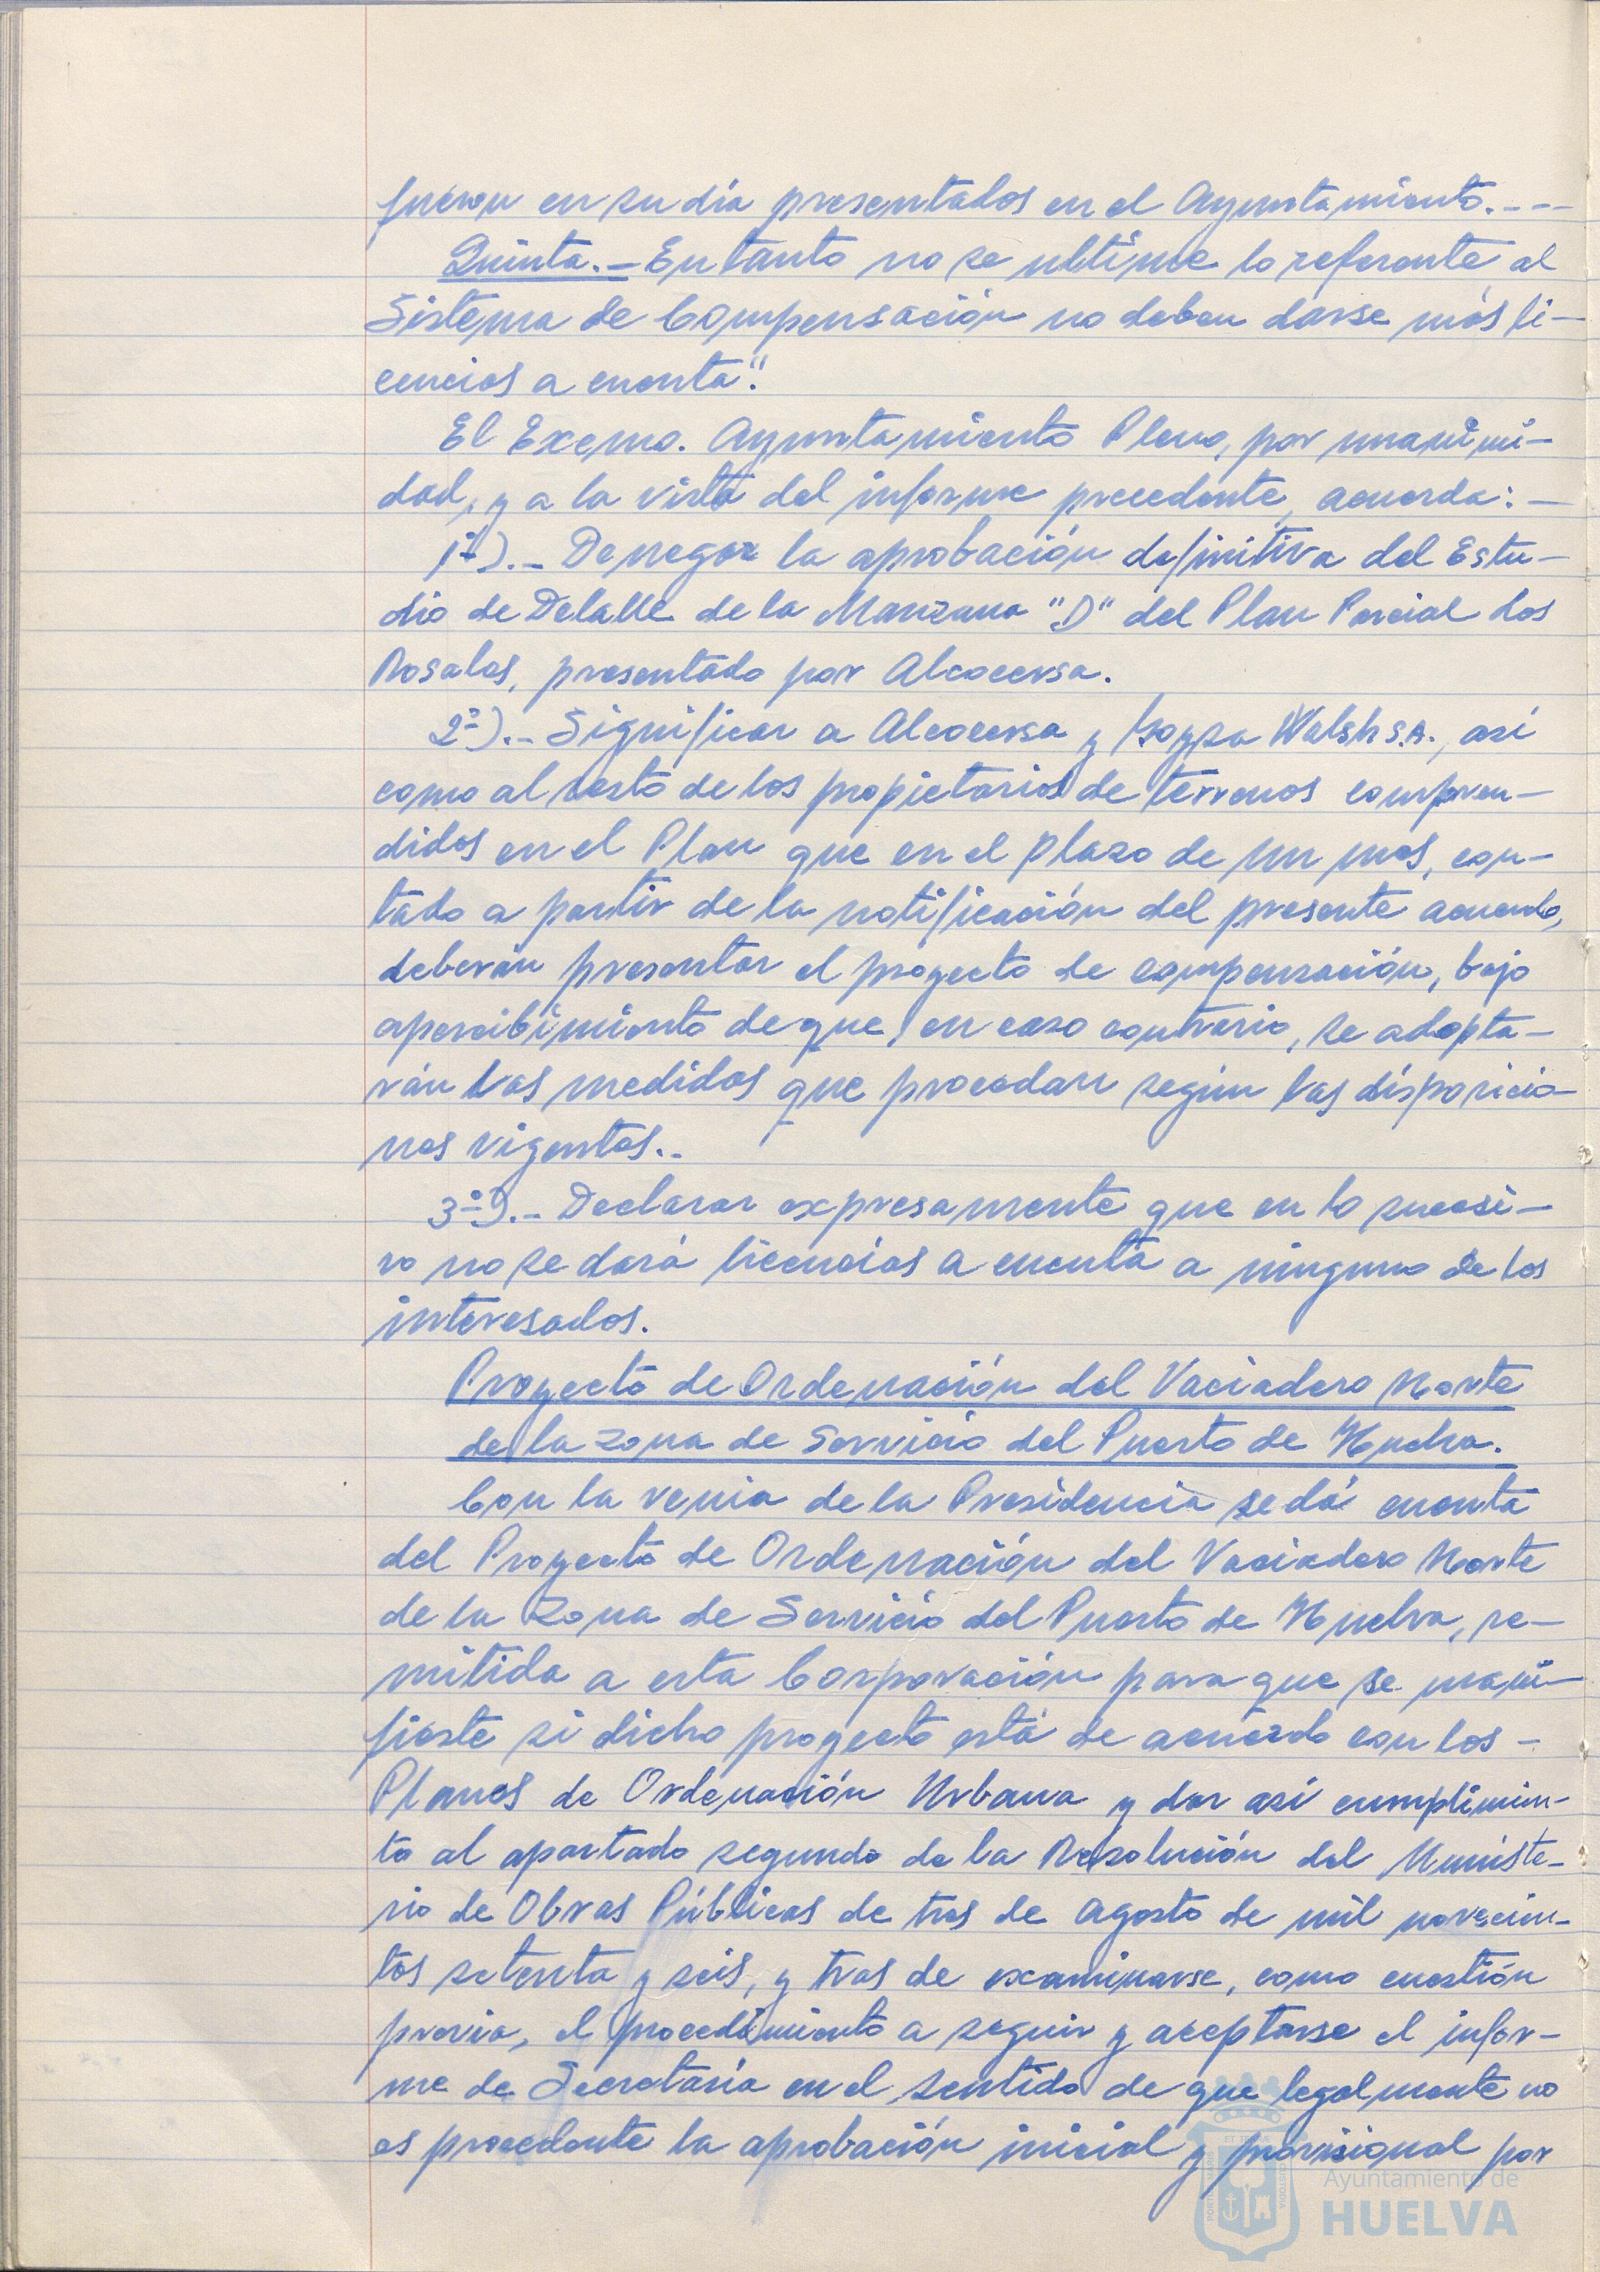 fueron en su día presentados en el Ayuntamiento.---
Quinta.- En tanto no se ultime lo referente al
Sistema de Compensación no deben darse más li-
cencias a cuenta".
El Excmo. Ayuntamiento Pleno, por unanimi-
dad, y a la vista del informe precedente, acuerda:-
1º).- Denegar la aprobación definitiva del Estu-
dio de Detalle de la Manzana "D" del Plan Parcial Los
Rosales, presentado por Alcocersa.
2º).- Significar a Alcocersa y Walsh S.A., así
como al resto de los propietarios de terrenos compren-
didos en el Plan que en el plazo de un mes, con-
tado a partir de la notificación del presente acuerdo,
deberán presentar el proyecto de compensación, bajo
apercibimiento de que, en caso contrario, se adopta-
rán las medidas que procedan según las disposicio-
nes vigentes.-
3º).- Declarar expresamente que en lo sucesi-
vo no se dará licencias a cuenta a ninguno de los
interesados.
Proyecto de Ordenación del Vaciadero Norte
de la zona de Servicio del Puerto de Huelva.
Con la venia de la Presidencia se dá cuenta
del Proyecto de Ordenación del Vaciadero Norte
de la Zona de Servicio del Puerto de Huelva, re-
mitida a esta Corporación para que se mani-
fieste si dicho proyecto está de acuerdo con los -
Planes de Ordenación Urbana y dar así cumplimien-
to al apartado segundo de la Resolución del Ministe-
rio de Obras Públicas de tres de Agosto de mil novecien-
tos setenta y seis, y tras de examinarse, como cuestión
previa, el procedimiento a seguir y aceptarse el infor-
me de Secretaría en el sentido de que legalmente no
es procedente la aprobación inicial y provisional por
Ayuntamiento de
HUELVA